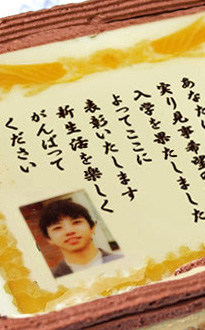 あなたは
実り見事希望の
入学を果たしました
よってここに
表彰いたします
新生活を楽しく
がんばって
ください